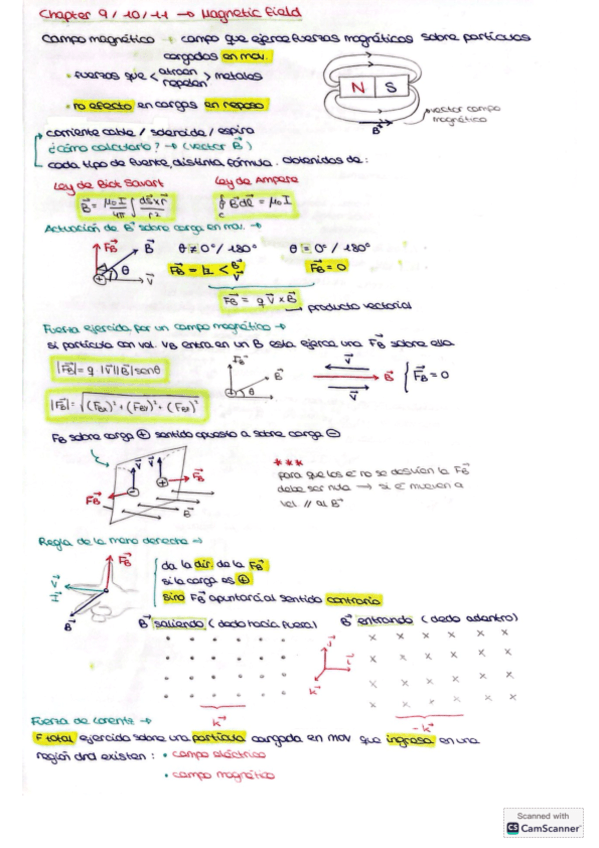 Chapter 9/10/11 → Magnetic Field
campo magnético → campo que ejerce fuerzas magnéticas sobre partículas
cargadas en mov.
• fuerzas que < atraen / repelen > metales
N S
• no efecto en cargas en reposo
vector campo magnético
B⃗
corriente cable / solenoide / espira
¿cómo calcularlo? → (vector B⃗)
cada tipo de fuente, distinta fórmula. Obtenidos de:
Ley de Biot Savart
Ley de Ampere
B⃗ = μ₀I/4π ∫ ds⃗ x r⃗ / r²
∮c B⃗ dl⃗ = μ₀I
Actuación de B⃗ sobre carga en mov. →
F⃗B B⃗ θ V⃗ +
θ ≠ 0°/180°
θ = 0°/180°
F⃗B = ⊥ < B⃗ / V⃗
F⃗B = 0
F⃗B = q V⃗ x B⃗
producto vectorial
Fuerza ejercida por un campo magnético →
si partícula con vel. VB entra en un B esta ejerce una F⃗B sobre ella
|F⃗B| = q |V⃗||B⃗| senθ
F⃗B B⃗ θ
V⃗ B⃗ V⃗
F⃗B = 0
|F⃗B| = √(FBx)² + (FBy)² + (FBz)²
FB sobre carga ⊕ sentido opuesto a sobre carga ⊖
V⃗ V⃗ F⃗B F⃗B B⃗
***
para que los e⁻ no se desvíen la F⃗B
debe ser nula → si e⁻ mueven a
vel // al B⃗
Regla de la mano derecha →
F⃗B V⃗ B⃗
da la dir. de la F⃗B
si la carga es ⊕
sino F⃗B apuntará al sentido contrario
B⃗ saliendo (dedo hacia fuera)
B⃗ entrando (dedo adentro)
j⃗ i⃗ k⃗
k⃗
-k⃗
Fuerza de Lorentz →
F total ejercida sobre una partícula cargada en mov que ingresa en una
región dnd existen: • campo eléctrico
• campo magnético
Scanned with
CS CamScanner